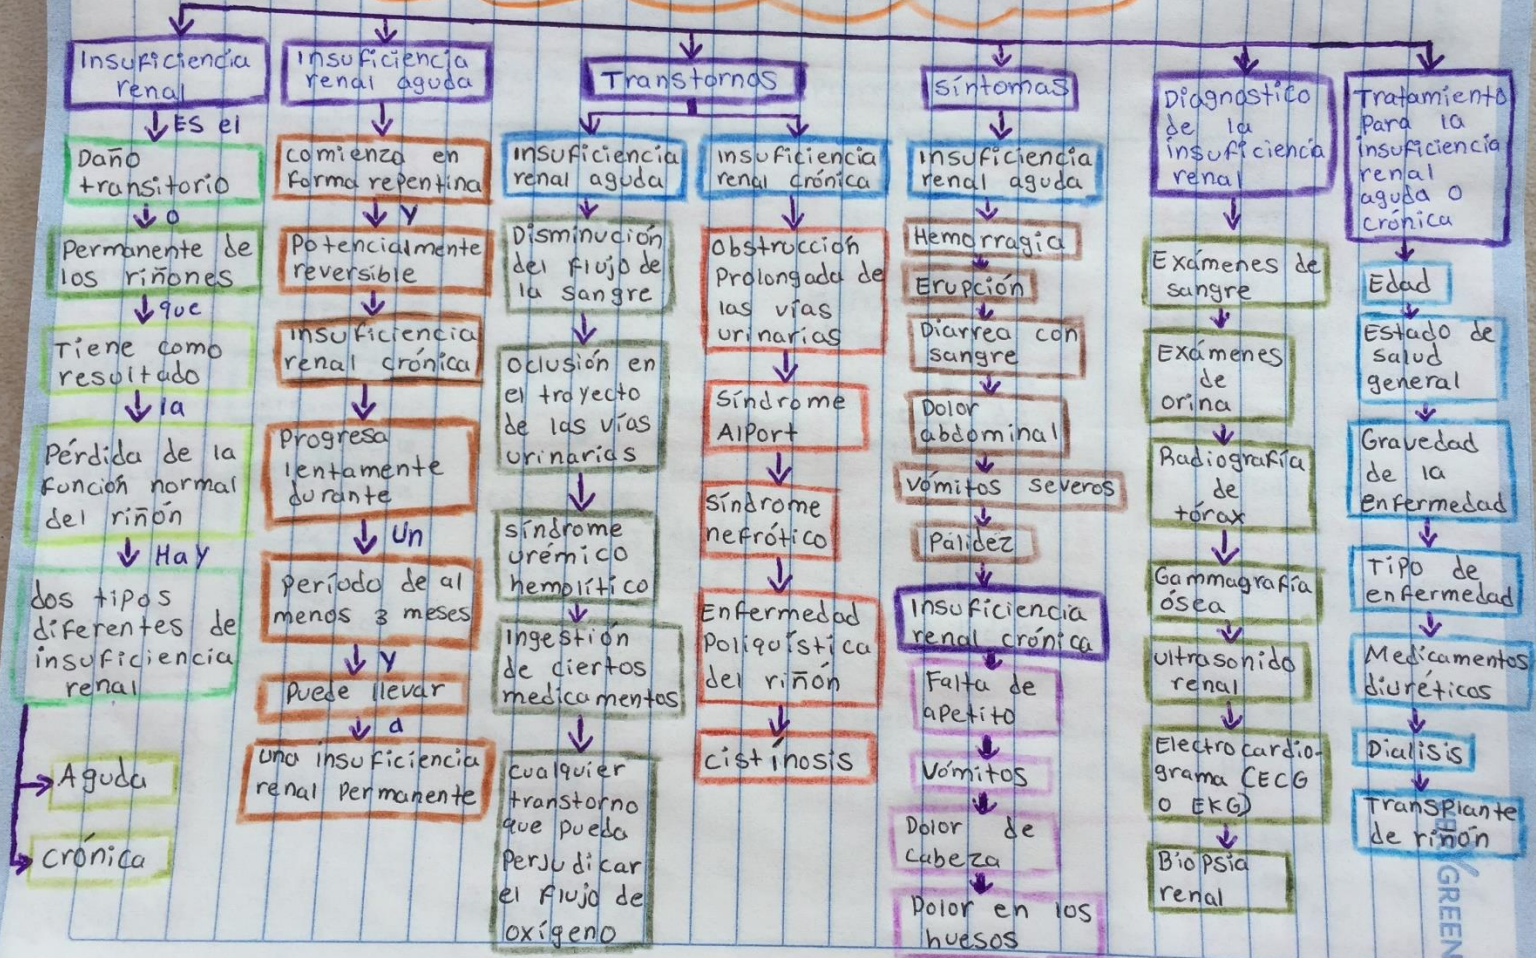 Insuficiencia
renal
ES el
Daño
transitorio
o
Permanente de
los riñones
que
Tiene como
resultado
la
Pérdida de la
función normal
del riñón
Hay
dos tipos
diferentes de
insuficiencia
renal
Aguda
crónica
Insuficiencia
renal aguda
comienza en
forma repentina
y
Potencialmente
reversible
Insuficiencia
renal crónica
Progresa
lentamente
durante
Un
Período de al
menos 3 meses
y
Puede llevar
a
una insuficiencia
renal Permanente
Transtornos
Insuficiencia
renal aguda
Disminución
del flujo de
la sangre
Oclusión en
el trayecto
de las vías
urinarias
síndrome
urémico
hemolítico
Ingestión
de ciertos
medicamentos
cualquier
transtorno
que pueda
Perjudicar
el flujo de
oxígeno
Insuficiencia
renal crónica
Obstrucción
Prolongada de
las vías
urinarias
Síndrome
Alport
Síndrome
nefrótico
Enfermedad
Poliquística
del riñón
cistínosis
síntomas
Insuficiencia
renal aguda
Hemorragia
Erupción
Diarrea con
sangre
Dolor
abdominal
Vómitos severos
Pálidez
Insuficiencia
renal crónica
Falta de
apetito
Vómitos
Dolor de
cabeza
Dolor en los
huesos
Diagnostico
de la
insuficiencia
renal
Exámenes de
sangre
Exámenes
de
orina
Radiografía
de
tórax
Gammagrafía
ósea
ultrasonido
renal
Electrocardio-
grama (ECG
O EKG)
Biopsia
renal
Tratamiento
Para la
insuficiencia
renal
aguda o
crónica
Edad
Estado de
salud
general
Gravedad
de la
enfermedad
Tipo de
enfermedad
Medicamentos
diuréticos
Dialisis
Transplante
de riñón
GREEN